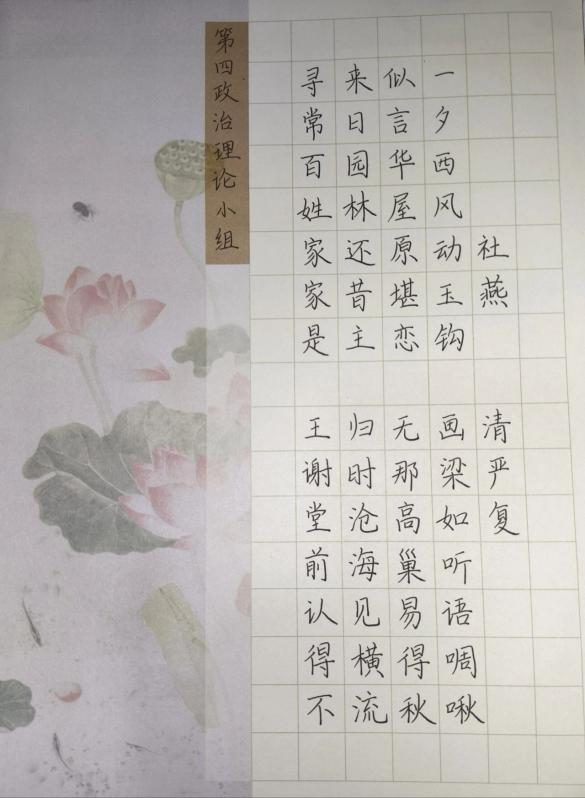 社燕 清严复
一夕西风动玉钩 画梁如听语啁啾
似言华屋原堪恋 无那高巢易得秋
来日园林还昔主 归时沧海见横流
寻常百姓家家是 王谢堂前认得不
第四政治理论小组